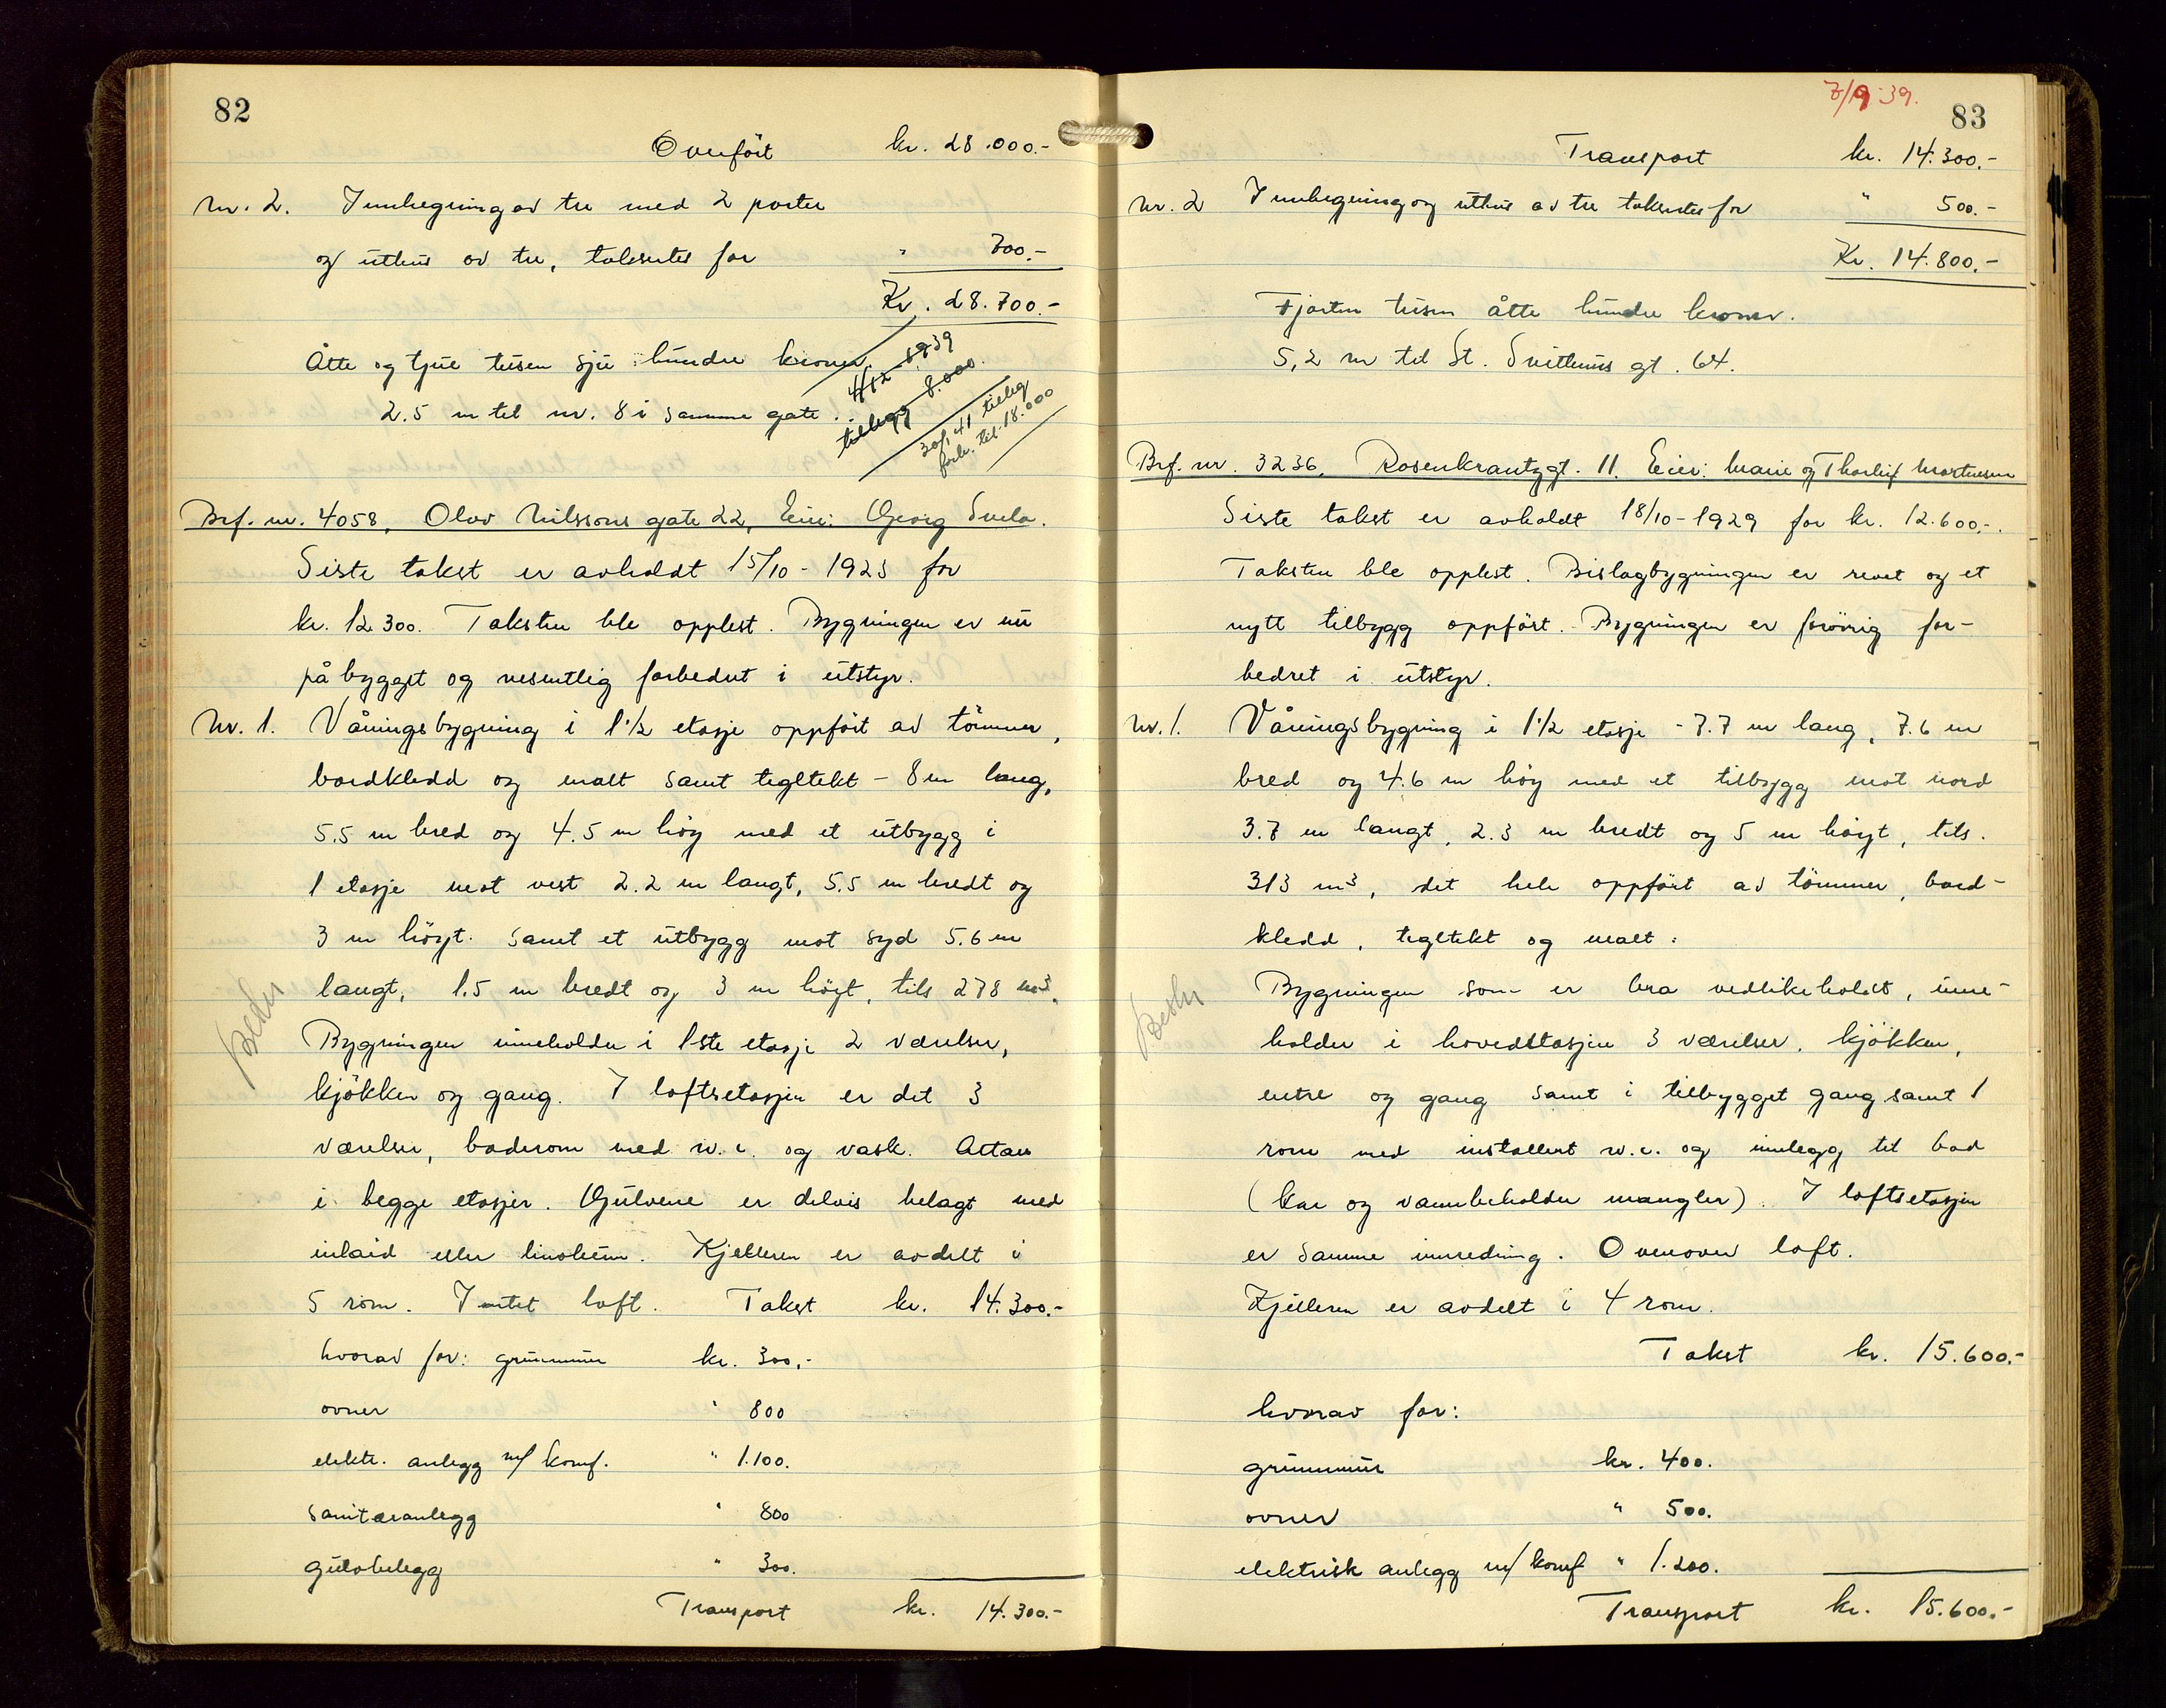 82
Overført kr. 28.000.-
Nr. 2. Innhegning av tre med 2 porter
og uthus av tre, taksertes for " 700.-
Kr. 28.700.-
Åtte og tjue tusen sju hundre kroner.
2.5 m til nr. 8 i samme gate.
4/12 1939
tillegg 8.000.
30/1 41 tilleg
forh. til 18.000
Brf. nr. 4058, Olav Nilssons gate 22, Eier: Georg Svela.
Siste takst er avholdt 15/10 - 1923 for
kr. 12.300. Taksten ble opplest. Bygningen er nu
påbygget og vesentlig forbedret i utstyr.
Nr. 1. Våningsbygning i 1 1/2 etasje oppført av tömmer,
bordkledd og malt samt tegltekt - 8 m lang,
5.5 m bred og 4.5 m höy med et utbygg i
1 etasje mot vest 2.2 m langt, 5.5 m bredt og
3 m höyt. Samt et utbygg mot syd 5.6 m
langt, 1.5 m bredt og 3 m höyt, tils 278 m3.
Bygningen inneholder i 1ste etasje 2 værelser,
kjökken og gang. I loftsetasjen er det 3
værelser, baderom med w.c. og vask. Altan
i begge etasjer. Gulvene er delvis belagt med
inlaid eller linoleum. Kjelleren er avdelt i
5 rom. Intet loft. Takst kr. 14.300.-
hvorav for: grunnmur kr. 300.-
ovner " 800
elektr. anlegg m/ komf. " 1.100.
Sanitæranlegg " 800
gulvbelegg " 300.
Transport kr. 14.300.-
7/9-39.
83
Transport kr. 14.300.-
Nr. 2 Innhegning og uthus av tre takseres for " 500.-
Kr. 14.800.-
Fjorten tusen åtte hundre kroner.
5,2 m til St. Svithuns gt. 64.
Brf. nr. 3236. Rosenkrantzgt. 11. Eier: Marie og Thorleif Mortensen
Siste takst er avholdt 18/10-1929 for kr. 12.600.-.
Taksten ble opplest. Bislagbygningen er revet og et
nytt tilbygg oppfört. Bygningen er forövrig for-
bedret i utstyr.
Nr. 1. Våningsbygning i 1 1/2 etasje - 7.7 m lang, 7.6 m
bred og 4.6 m höy med et tilbygg mot nord
3.7 m langt, 2.3 m bredt og 5 m höyt, tils.
313 m3, det hele oppfört av tömmer, bord-
kledd, tegltekt og malt.
Bygningen som er bra vedlikeholdt, inne-
holder i hovedetasjen 3 værelser, kjökken,
entre og gang samt i tilbygget gang samt 1
rom med installert w.c. og innlegg til bad
(kar og vannbeholder mangler). I loftsetasjen
er samme innredning. Ovenover loft.
Kjelleren er avdelt i 4 rom.
Takst kr. 15.600.-
hvorav for:
grunnmur kr. 400.
ovner " 500.
elektrisk anlegg m/ komf " 1.200.
Transport kr. 15.600.-